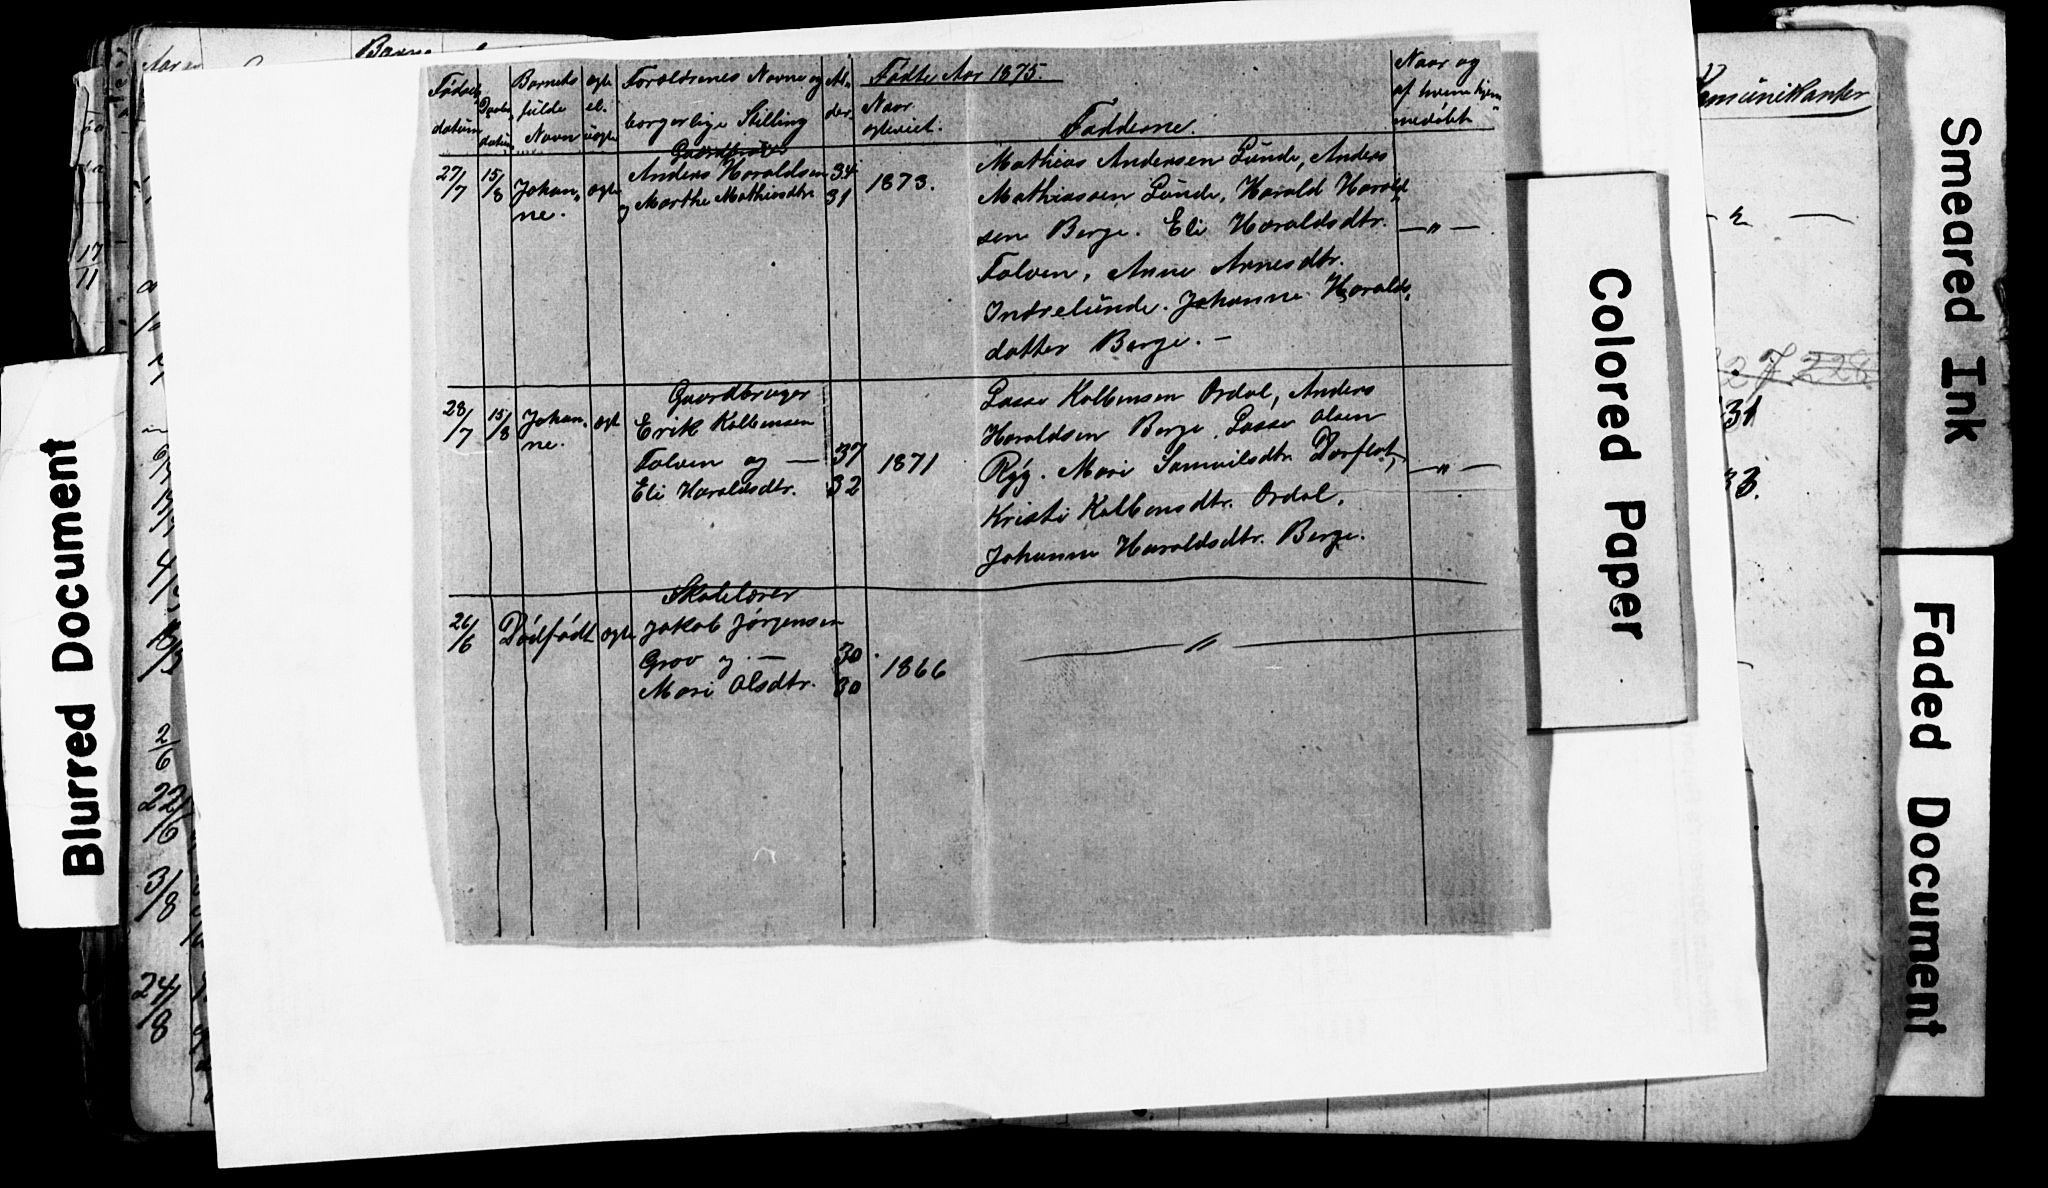 Fødte Aar 1875.
Fødsels datum
Daabs datum
Barnets fulde Navn
ægte el. uægte
Forældrenes Navne og borgerlige Stilling
Al-der
Naar egteviet.
Fadderne.
Naar og af hvem hjem-medøbt
27/7
15/8
Johan-
ne.
ægte
Gaardbruger
Anders Haraldsen
og Marthe Mathiasdtr.
34
31
1873.
Mathias Andersen Lunde, Anders
Mathiassen Lunde, Harald Harald-
sen Berge. Eli Haraldsdtr.
Folven, Anne Arnesdtr.
Indrelunde. Johanne Haralds-
datter Berge. —
— " —
28/7
15/8
Johan-
ne.
ægt
Gaardbruger
Erik Kolbensen
Folven og —
Eli Haraldsdtr.
37
32
1871
Lasse Kolbensen Ordal, Anders
Haraldsen Berge, Lasse Olsen
Ryg. Mari Samuilsdtr.
Kristi Kolbensdtr. Ordal,
Johanne Haraldsdtr. Berge.
— " —
26/6
Dødfødt
ægte
Skolelærer
Jakob Jørgensen
Grov og —
Mari Olsdtr.
30
30
1866
— " —
17/11
22/6
3/8
24/8
31
33.
Blurred Document
Colored Paper
Smeared Ink
Faded Document